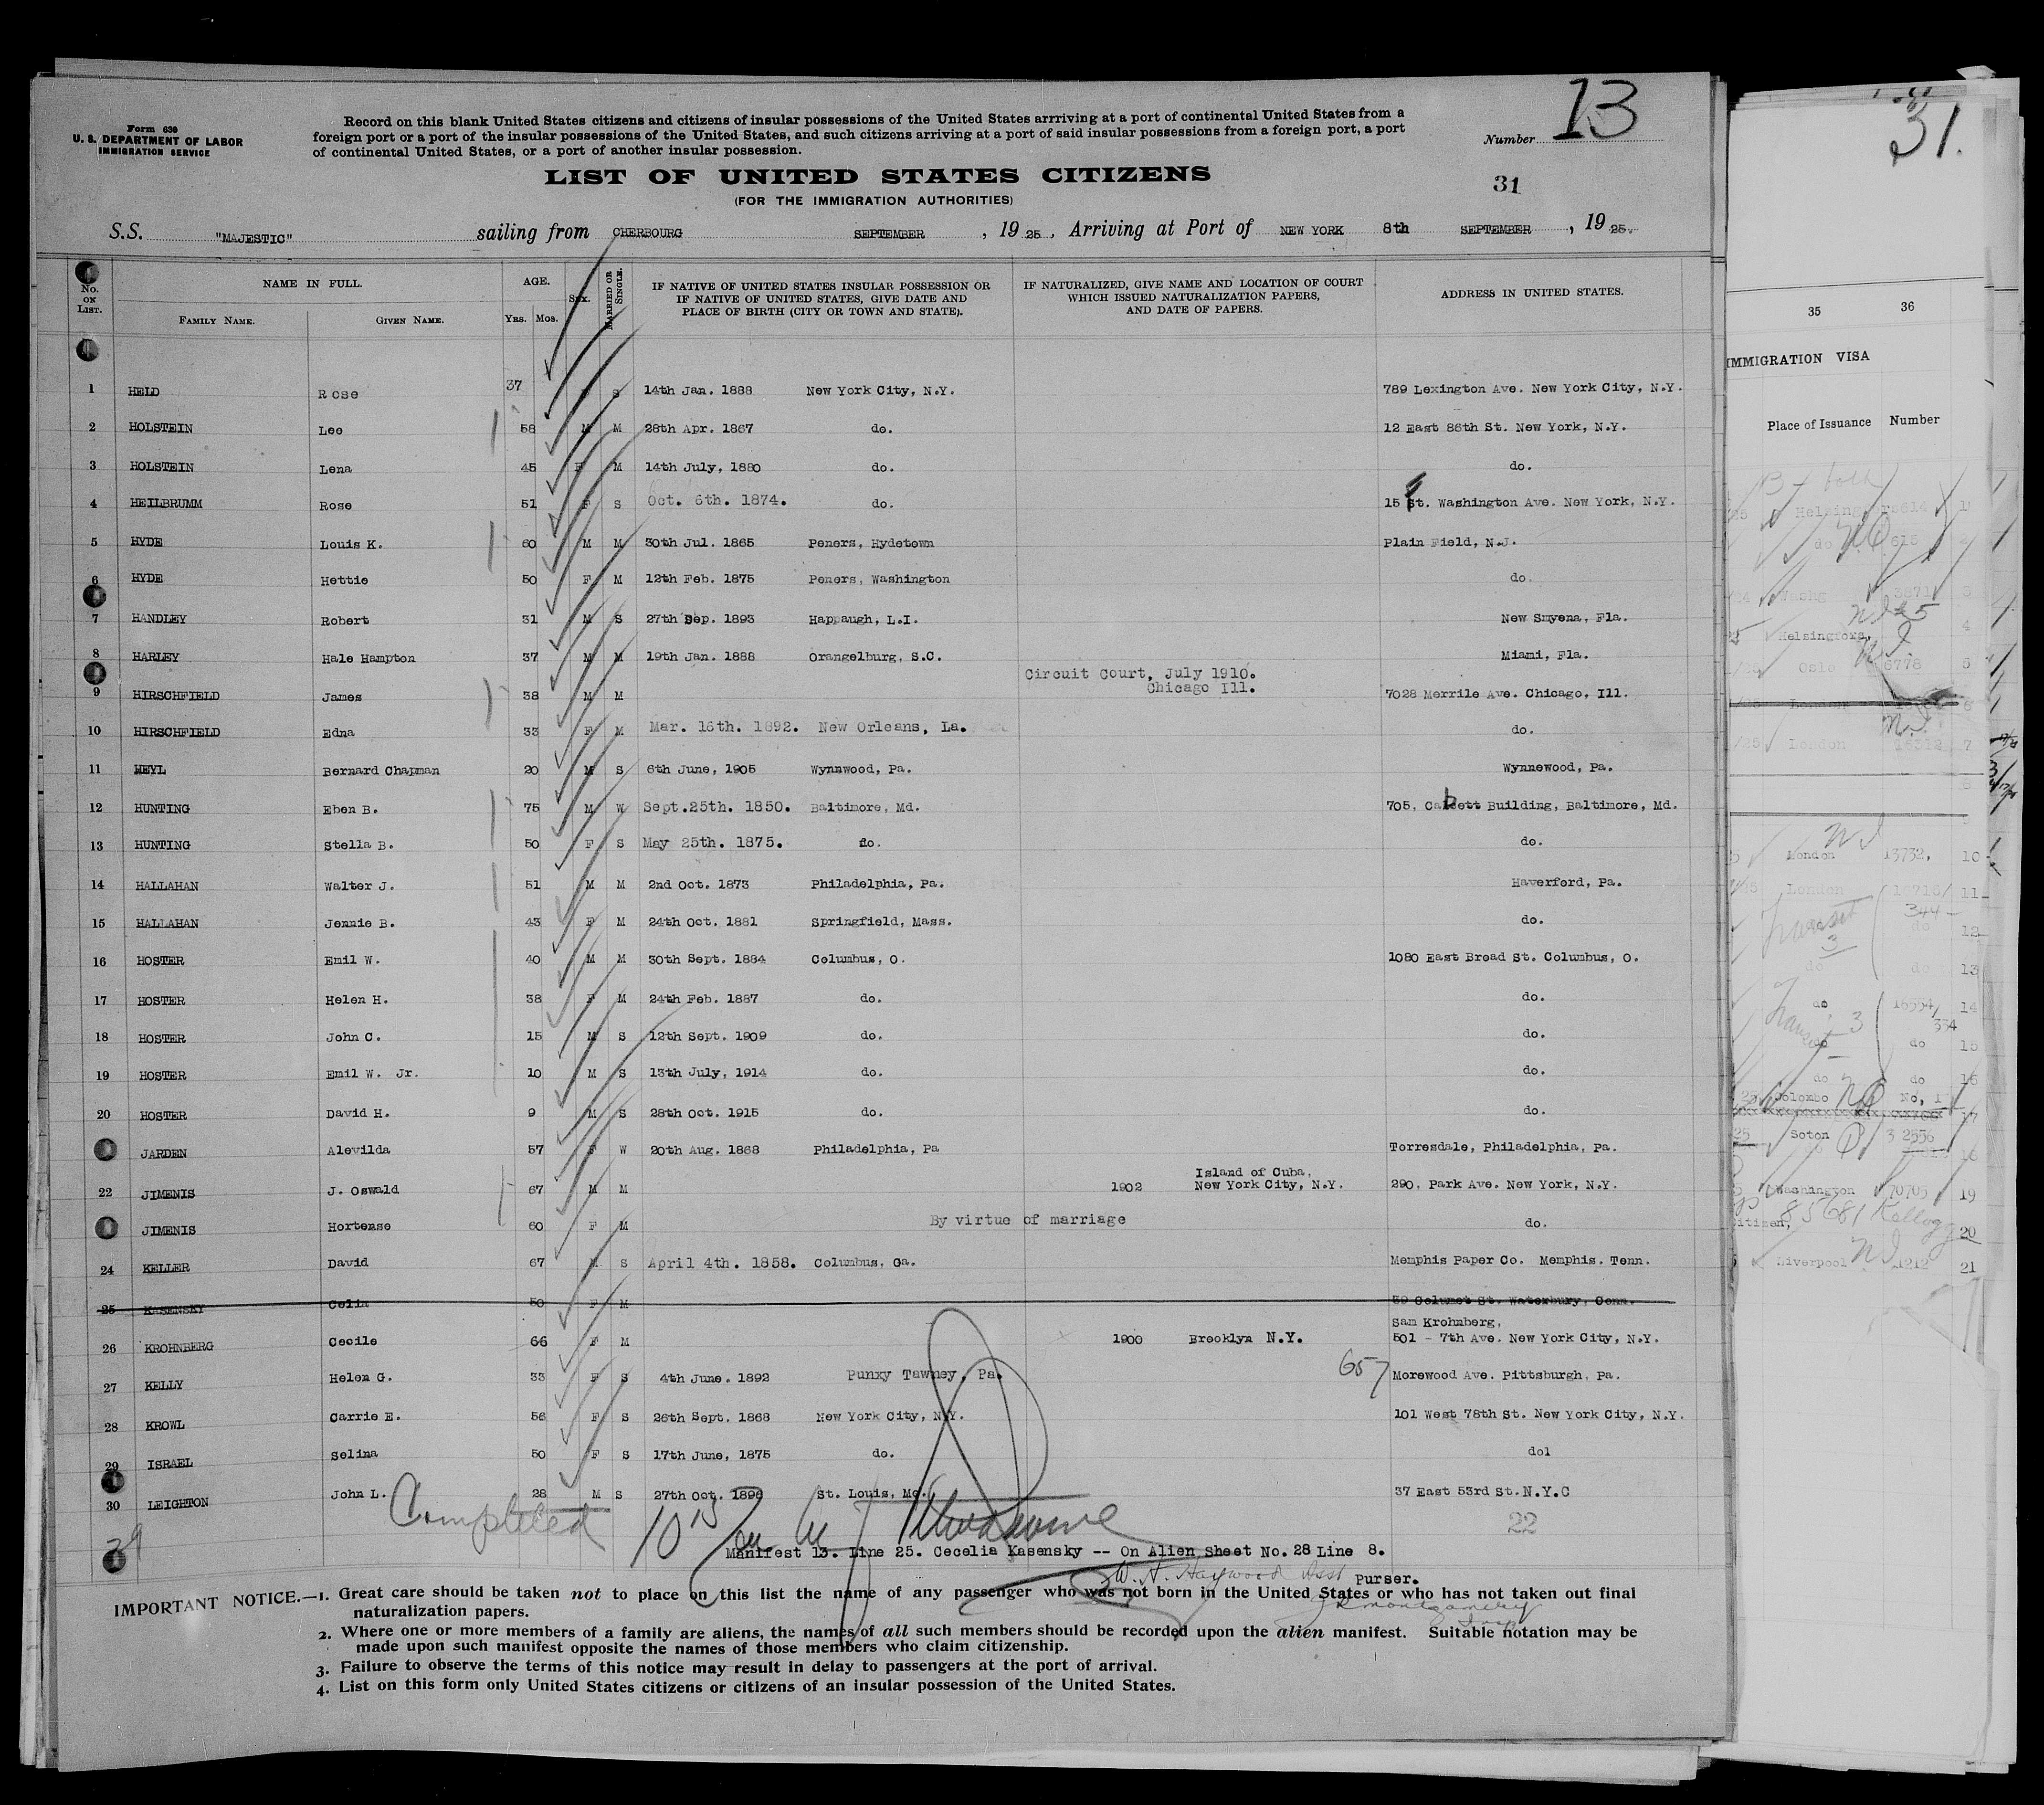 Form 630
U. S. DEPARTMENT OF LABOR
IMMIGRATION SERVICE
Record on this blank United States citizens and citizens of insular possessions of the United States arrriving at a port of continental United States from a
foreign port or a port of the insular possessions of the United States, and such citizens arriving at a port of said insular possessions from a foreign port, a port
of continental United States, or a port of another insular possession.
Number 13
LIST OF UNITED STATES CITIZENS
(FOR THE IMMIGRATION AUTHORITIES)
31
S.S. "MAJESTIC" sailing from CHERBOURG SEPTEMBER , 19 25 , Arriving at Port of NEW YORK 8th SEPTEMBER , 19 25.
No. ON LIST. NAME IN FULL. FAMILY NAME. GIVEN NAME. AGE. YRS. MOS. SEX. MARRIED OR SINGLE. IF NATIVE OF UNITED STATES INSULAR POSSESSION OR IF NATIVE OF UNITED STATES, GIVE DATE AND PLACE OF BIRTH (CITY OR TOWN AND STATE). IF NATURALIZED, GIVE NAME AND LOCATION OF COURT WHICH ISSUED NATURALIZATION PAPERS, AND DATE OF PAPERS. ADDRESS IN UNITED STATES.
1 HELD Rose 37 F S 14th Jan. 1888 New York City, N.Y. 789 Lexington Ave. New York City, N.Y.
2 HOLSTEIN Leo 58 M M 28th Apr. 1867 do. 12 East 86th St. New York, N.Y.
3 HOLSTEIN Lena 45 F M 14th July, 1880 do. do.
4 HEILBRUMM Rose 51 F S Oct. 6th. 1874. do. 15 St. Washington Ave. New York, N.Y.
5 HYDE Louis K. 60 M M 30th Jul. 1865 Peners, Hydetown Plain Field, N.J.
6 HYDE Hettie 50 F M 12th Feb. 1875 Peners, Washington do.
7 HANDLEY Robert 31 M S 27th Sep. 1893 Happaugh, L.I. New Smyena, Fla.
8 HARLEY Hale Hampton 37 M M 19th Jan. 1888 Orangelburg, S.C. Miami, Fla.
9 HIRSCHFIELD James 38 M M Circuit Court, July 1910. Chicago Ill. 7028 Merrile Ave. Chicago, Ill.
10 HIRSCHFIELD Edna 33 F M Mar. 16th. 1892. New Orleans, La. do.
11 HEYL Bernard Chapman 20 M S 6th June, 1905 Wynnwood, Pa. Wynnewood, Pa.
12 HUNTING Eben B. 75 M W Sept.25th. 1850. Baltimore, Md. 705, Building, Baltimore, Md.
13 HUNTING Stella B. 50 F S May 25th. 1875. do. do.
14 HALLAHAN Walter J. 51 M M 2nd Oct. 1873 Philadelphia, Pa. Haverford, Pa.
15 HALLAHAN Jennie B. 43 F M 24th Oct. 1881 Springfield, Mass. do.
16 HOSTER Emil W. 40 M M 30th Sept. 1884 Columbus, O. 1080 East Broad St. Columbus, O.
17 HOSTER Helen H. 38 F M 24th Feb. 1887 do. do.
18 HOSTER John C. 15 M S 12th Sept. 1909 do. do.
19 HOSTER Emil W. Jr. 10 M S 13th July, 1914 do. do.
20 HOSTER David H. 9 M S 28th Oct. 1915 do. do.
JARDEN Alevilda 57 F W 20th Aug. 1868 Philadelphia, Pa Torresdale, Philadelphia, Pa.
22 JIMENIS J. Oswald 67 M M 1902 Island of Cuba, New York City, N.Y. 290, Park Ave. New York, N.Y.
JIMENIS Hortense 60 F M By virtue of marriage do.
24 KELLER David 67 M S April 4th. 1858. Columbus, Ga. Memphis Paper Co. Memphis, Tenn.
25 KASENSKY Celia 50 F M 59 Columet St. Waterbury, Conn.
26 KROHNBERG Cecile 66 F M 1900 Brooklyn N.Y. Sam Krohnberg, 501 - 7th Ave. New York City, N.Y.
27 KELLY Helen G. 33 F S 4th June. 1892 Punxy Tawney, Pa. 657 Morewood Ave. Pittsburgh, Pa.
28 KROWL Carrie E. 56 F S 26th Sept. 1868 New York City, N.Y. 101 West 78th St. New York City, N.Y.
29 ISRAEL Selina 50 F S 17th June, 1875 do. dol
30 LEIGHTON John L. 28 M S 27th Oct. 1896 St. Louis, Mo. 37 East 53rd St. N.Y.C
Completed
22
29
Manifest 13. Line 25. Cecelia Kasensky -- On Alien Sheet No. 28 Line 8.
W. H. Haywood Asst Purser.
IMPORTANT NOTICE.—1. Great care should be taken not to place on this list the name of any passenger who was not born in the United States or who has not taken out final
naturalization papers.
2. Where one or more members of a family are aliens, the names of all such members should be recorded upon the alien manifest. Suitable notation may be
made upon such manifest opposite the names of those members who claim citizenship.
3. Failure to observe the terms of this notice may result in delay to passengers at the port of arrival.
4. List on this form only United States citizens or citizens of an insular possession of the United States.
31.
35 36
IMMIGRATION VISA
Place of Issuance Number
Helsingfors,
Oslo 6778 5
London 16312 7
London 13732, 10
London 11
Transit 3
do 16554/ 14
334
do do 15
do do 16
Colombo No, 1
25 Soton 3 2556
Washington 70705 19
85681 Kellogg 20
Liverpool 1212 21